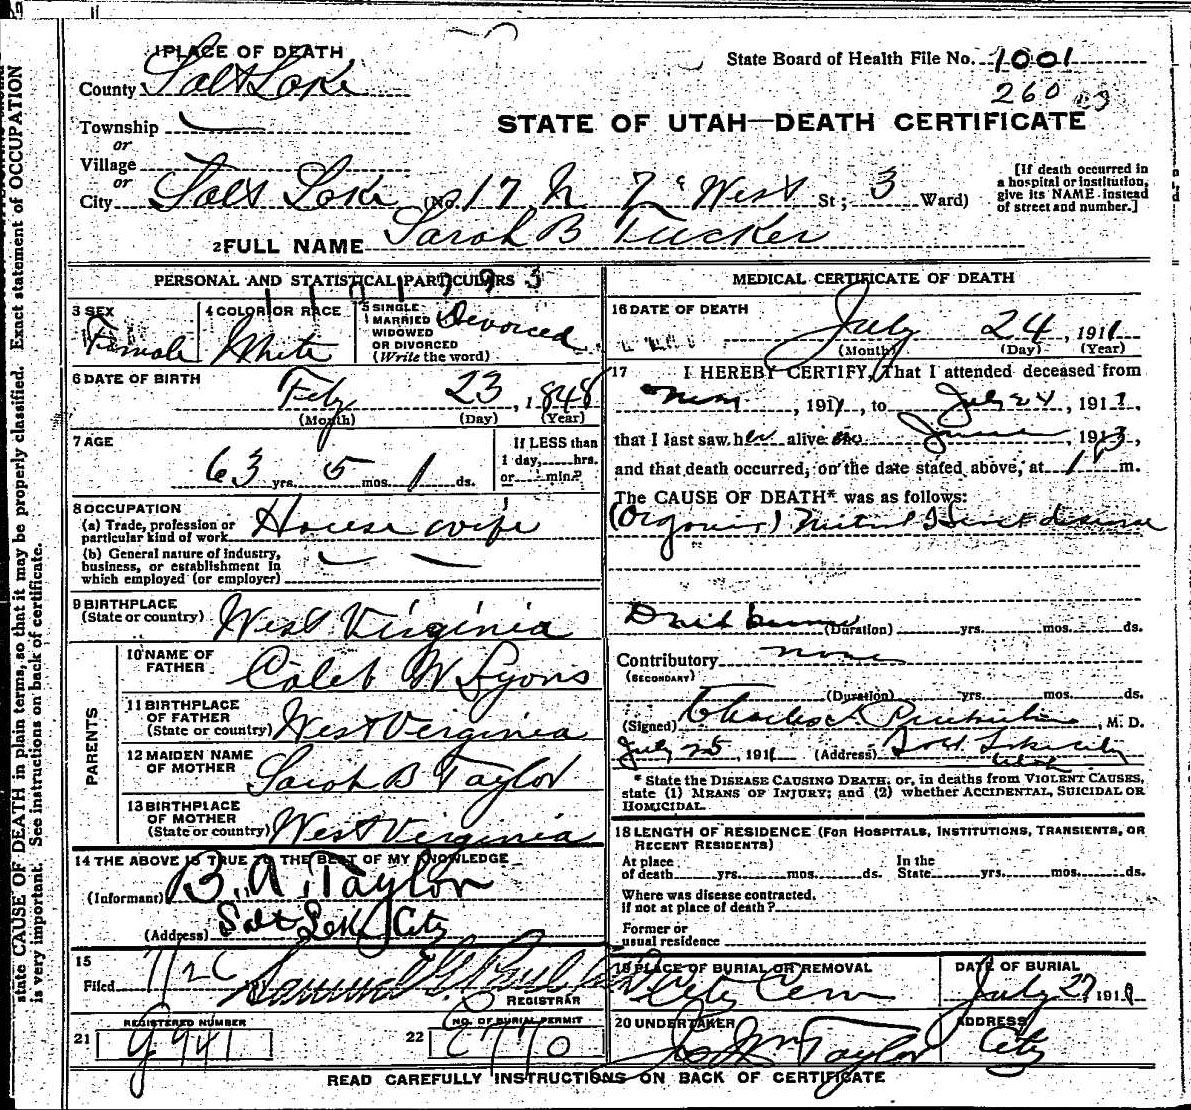 1 PLACE OF DEATH
State Board of Health File No. 1001
County Salt Lake
260
Township
or
STATE OF UTAH—DEATH CERTIFICATE
Village
or
City Salt Lake (No. 17 N 7 West St; 3 Ward)
[If death occurred in a hospital or institution, give its NAME instead of street and number.]
2 FULL NAME Sarah B Tucker
PERSONAL AND STATISTICAL PARTICULARS
3 SEX
Female
4 COLOR OR RACE
White
5 SINGLE
MARRIED
WIDOWED
OR DIVORCED
(Write the word)
Divorced
6 DATE OF BIRTH
Feby 23, 1848
(Month) (Day) (Year)
7 AGE
63 yrs. 5 mos. 1 ds.
If LESS than
1 day,.....hrs.
or.....min.?
8 OCCUPATION
(a) Trade, profession or
particular kind of work House wife
(b) General nature of industry,
business, or establishment in
which employed (or employer)
9 BIRTHPLACE
(State or country) West Virginia
PARENTS
10 NAME OF
FATHER Caleb W Lyons
11 BIRTHPLACE
OF FATHER
(State or country) West Virginia
12 MAIDEN NAME
OF MOTHER Sarah B Taylor
13 BIRTHPLACE
OF MOTHER
(State or country) West Virginia
14 THE ABOVE IS TRUE TO THE BEST OF MY KNOWLEDGE
(Informant) B. A. Taylor
(Address) Salt Lake City
15
Filed 7/26
REGISTRAR
21 REGISTERED NUMBER
G 941
22 NO. OF BURIAL PERMIT
C 770
MEDICAL CERTIFICATE OF DEATH
16 DATE OF DEATH
July 24, 1911
(Month) (Day) (Year)
17 I HEREBY CERTIFY, That I attended deceased from
, 191, to July 24, 1911,
that I last saw her alive on June, 191,
and that death occurred, on the date stated above, at 1 P m.
The CAUSE OF DEATH* was as follows:
(Organic) Mitral Heart disease
(Duration) yrs. mos. ds.
Contributory none
(SECONDARY)
(Duration) yrs. mos. ds.
(Signed) Charles, M. D.
July 25, 1911 (Address) Salt Lake City
Utah
* State the DISEASE CAUSING DEATH, or, in deaths from VIOLENT CAUSES,
state (1) MEANS OF INJURY; and (2) whether ACCIDENTAL, SUICIDAL OR
HOMICIDAL.
18 LENGTH OF RESIDENCE (FOR HOSPITALS, INSTITUTIONS, TRANSIENTS, OR
RECENT RESIDENTS)
At place
of death yrs. mos. ds.
In the
State yrs. mos. ds.
Where was disease contracted,
if not at place of death?
Former or
usual residence
19 PLACE OF BURIAL OR REMOVAL
City Cem
DATE OF BURIAL
July 27 191
20 UNDERTAKER
Jos Wm Taylor
ADDRESS
City
READ CAREFULLY INSTRUCTIONS ON BACK OF CERTIFICATE
state CAUSE OF DEATH in plain terms, so that it may be properly classified. Exact statement of OCCUPATION
is very important. See instructions on back of certificate.